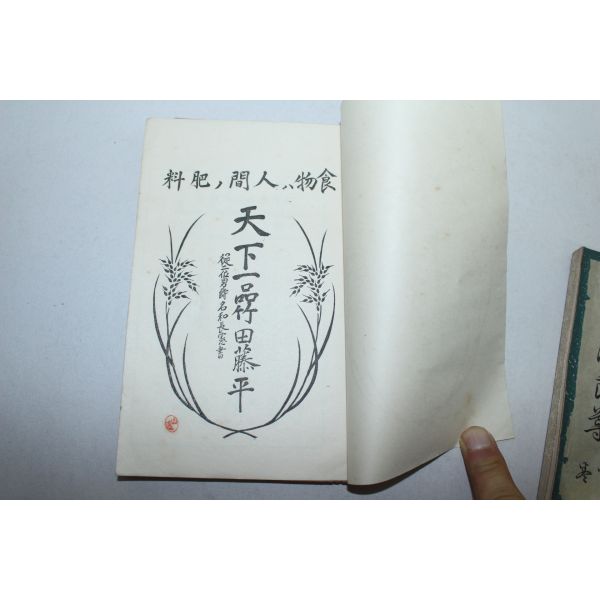 食物ハ人間ノ肥料
天下一品竹田藤平
從三位男爵名和長憲書